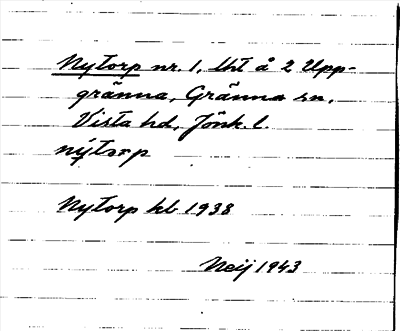 Nytorp nr. 1, Uht å 2 Upp-
gränna, Gränna sn,
Vista hd, Jönk. l.
nýtorp
Nytorp kb 1938
Neij 1943